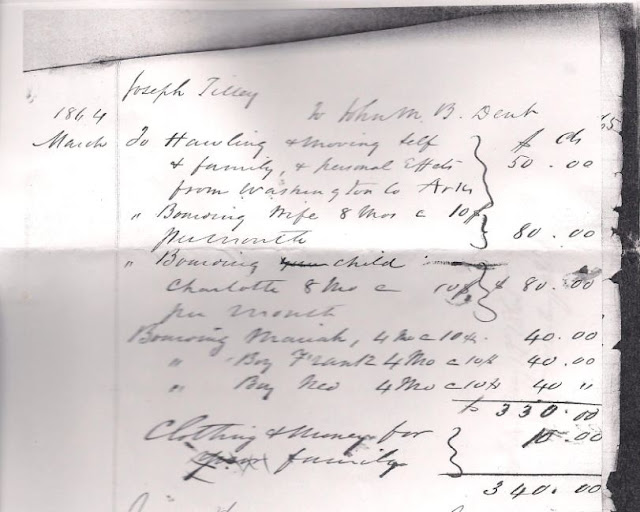 Joseph Tilley
To John M. B. Dent
1864
March To Hawling & moving self $ cts
& family, & personal Effects 50.00
from Washington Co Arks
" Boarding Wife 8 Mos @ 10$
per month 80.00
" Boarding child
Charlotte 8 Mo @ 10$ $ 80.00
per month
Boarding Mariah, 4 Mo @ 10$. 40.00
" Boy Frank 4 Mo @ 10$ 40.00
" Boy Neo 4 Mo @ 10$ 40 "
$ 330.00
Clothing & Money for 10.00
family
340.00